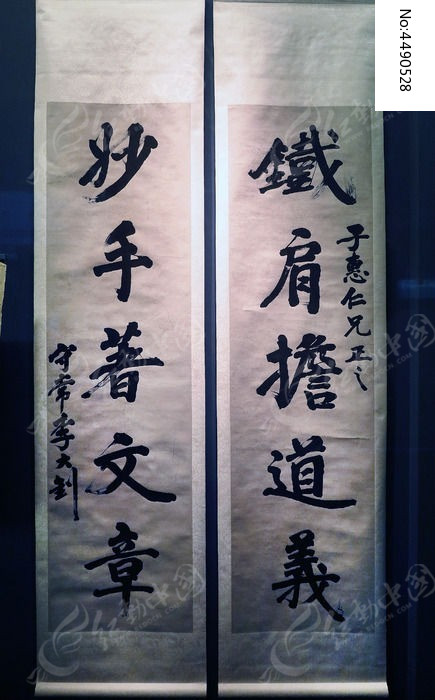 鐵肩擔道義
子惠仁兄正之
妙手著文章
守常李大釗
No:4490528
红动中国